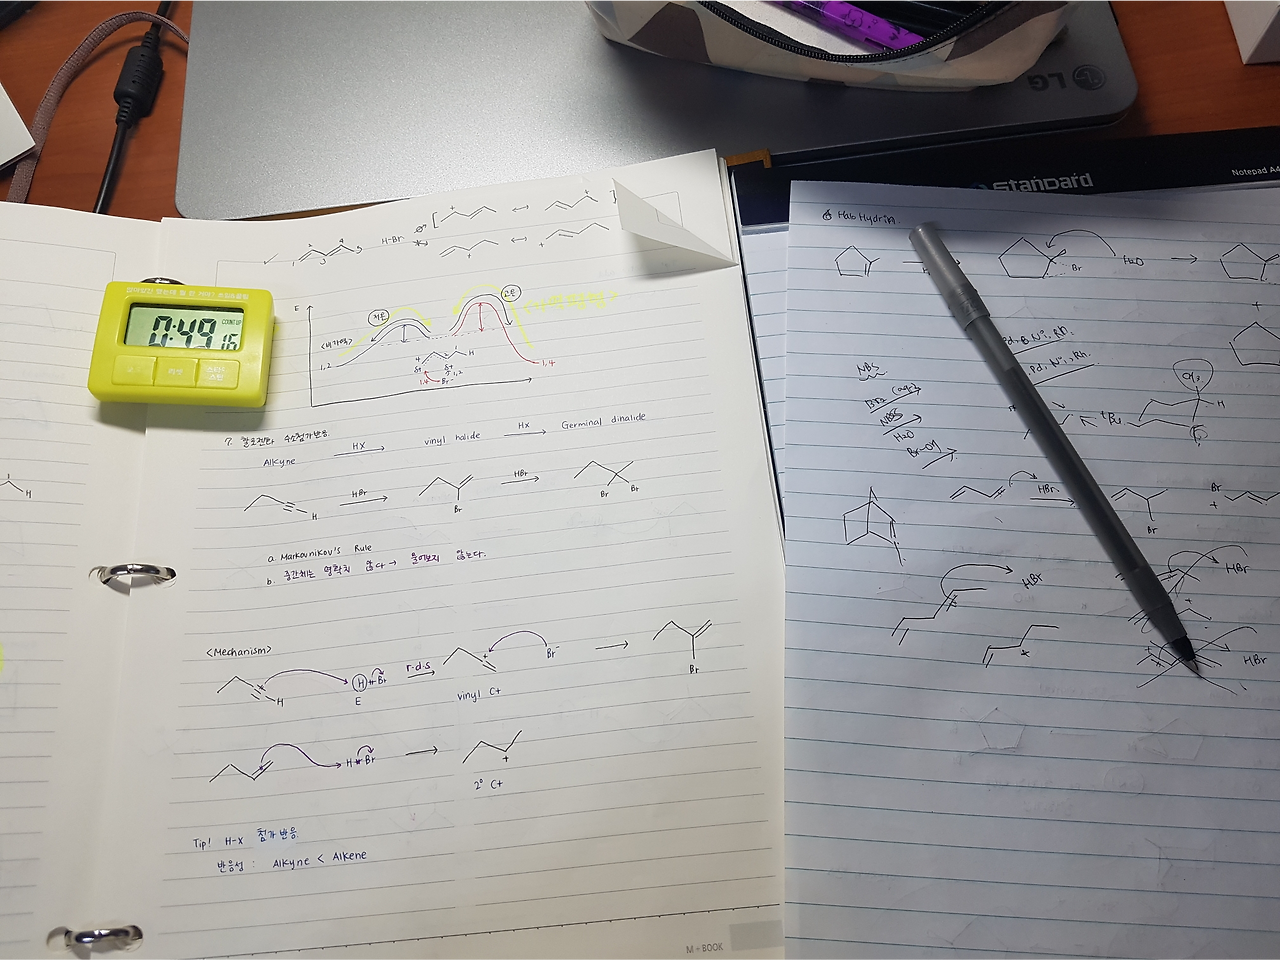 LG
Standard
Notepad A4
0:49 16
COUNT UP
H-Br
1 2 3 4 5
E
저온
고온
<비가역>
1,2
4
1
H
δ+
δ+
1,2
1,4
Br⁻
1,4
7. 할로젠화 수소첨가반응.
Alkyne
HX
vinyl halide
HX
Germinal dihalide
H
HBr
Br
HBr
Br
Br
a. Markovnikov's Rule
b. 중간체는 명확치 않다 → 물어보지 않는다.
<Mechanism>
H
H
Br
E
r.d.s
vinyl C+
Br⁻
Br
H
Br
2° C+
Tip! H-X 첨가반응.
반응성 : Alkyne < Alkene
M-BOOK
HaloHydrin
Br
H₂O
Pd, Ni, Rh.
Pd, Ni, Rh.
NBS
Br₂ (aq)
NBS
H₂O
Br-OH
CH₃
H
tBu
HBr
Br
Br
+
HBr
HBr
HBr